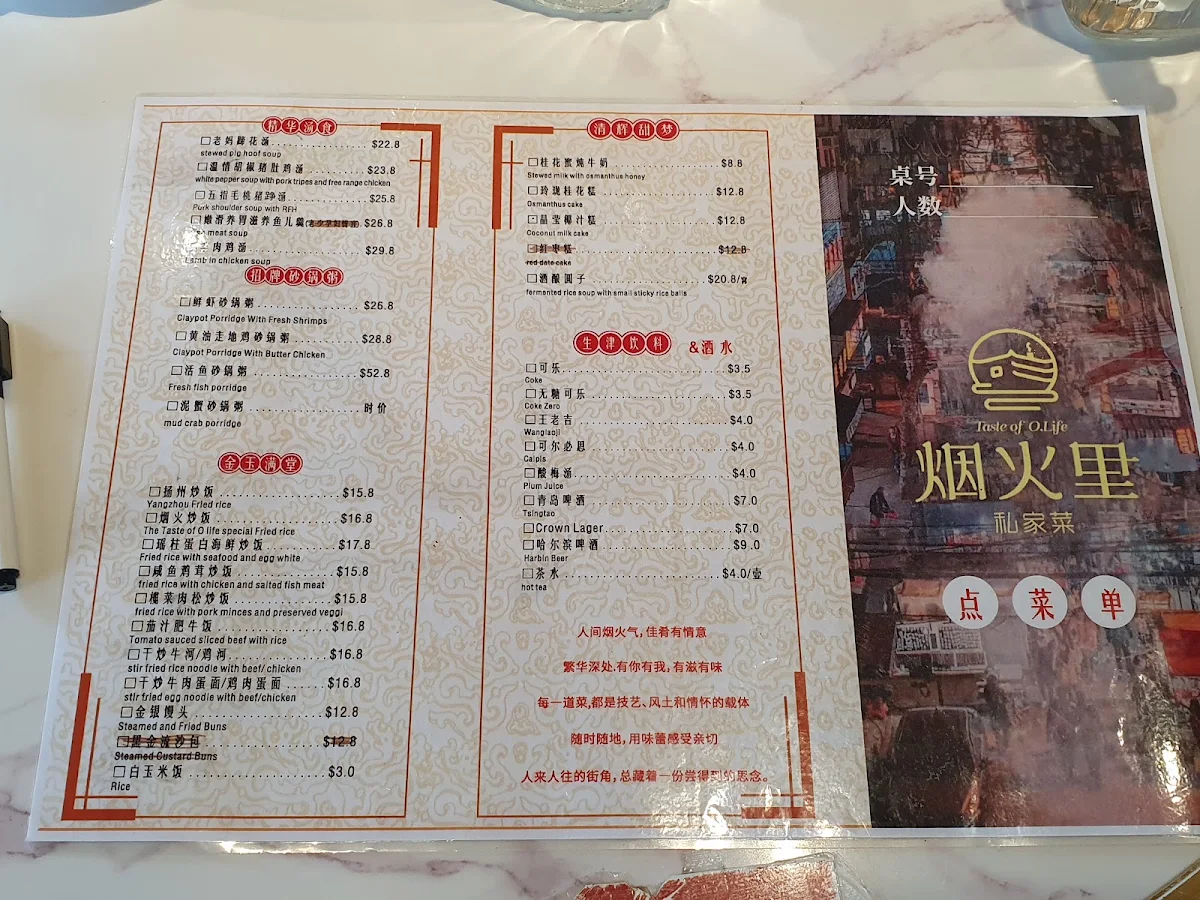 精华汤食
□老妈蹄花汤 $22.8
stewed pig hoof soup
□温情胡椒猪肚鸡汤 $23.8
white pepper soup with pork tripes and free range chicken
□五指毛桃猪踭汤 $25.8
Pork shoulder soup with RFH
□嫩滑养胃滋养鱼儿羹 $26.8
meat soup
肉鸡汤 $29.8
Lamb in chicken soup
招牌砂锅粥
□鲜虾砂锅粥 $26.8
Claypot Porridge With Fresh Shrimps
□黄油走地鸡砂锅粥 $28.8
Claypot Porridge With Butter Chicken
□活鱼砂锅粥 $52.8
Fresh fish porridge
□泥蟹砂锅粥 时价
mud crab porridge
金玉满堂
□扬州炒饭 $15.8
Yangzhou Fried rice
□烟火炒饭 $16.8
The Taste of O life special Fried rice
□瑶柱蛋白海鲜炒饭 $17.8
Fried rice with seafood and egg white
□咸鱼鸡茸炒饭 $15.8
fried rice with chicken and salted fish meat
□榄菜肉松炒饭 $15.8
fried rice with pork minces and preserved veggi
□茄汁肥牛饭 $16.8
Tomato sauced sliced beef with rice
□干炒牛河/鸡河 $16.8
stir fried rice noodle with beef/ chicken
□干炒牛肉蛋面/鸡肉蛋面 $16.8
stir fried egg noodle with beef/chicken
□金银馒头 $12.8
Steamed and Fried Buns
□黑金流沙包 $12.8
Steamed Custard Buns
□白玉米饭 $3.0
Rice
清辉甜梦
□桂花蜜炖牛奶 $8.8
Stewed milk with osmanthus honey
□玲珑桂花糕 $12.8
Osmanthus cake
□晶莹椰汁糕 $12.8
Coconut milk cake
□红枣糕 $12.8
red date cake
□酒酿圆子 $20.8/窝
fermented rice soup with small sticky rice balls
生津饮料 &酒水
□可乐 $3.5
Coke
□无糖可乐 $3.5
Coke Zero
□王老吉 $4.0
Wanglaoji
□可尔必思 $4.0
Calpis
□酸梅汤 $4.0
Plum Juice
□青岛啤酒 $7.0
Tsingtao
□Crown Lager $7.0
□哈尔滨啤酒 $9.0
Harbin Beer
□茶水 $4.0/壶
hot tea
人间烟火气,佳肴有情意
繁华深处.有你有我,有滋有味
每一道菜,都是技艺、风土和情怀的载体
随时随地,用味蕾感受亲切
人来人往的街角,总藏着一份尝得到的思念。
桌号
人数
Taste of O.Life
烟火里
私家菜
点菜单